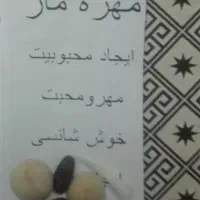 مهره مار
ایجاد محبوبیت
مهرومحبت
خوش شانسی